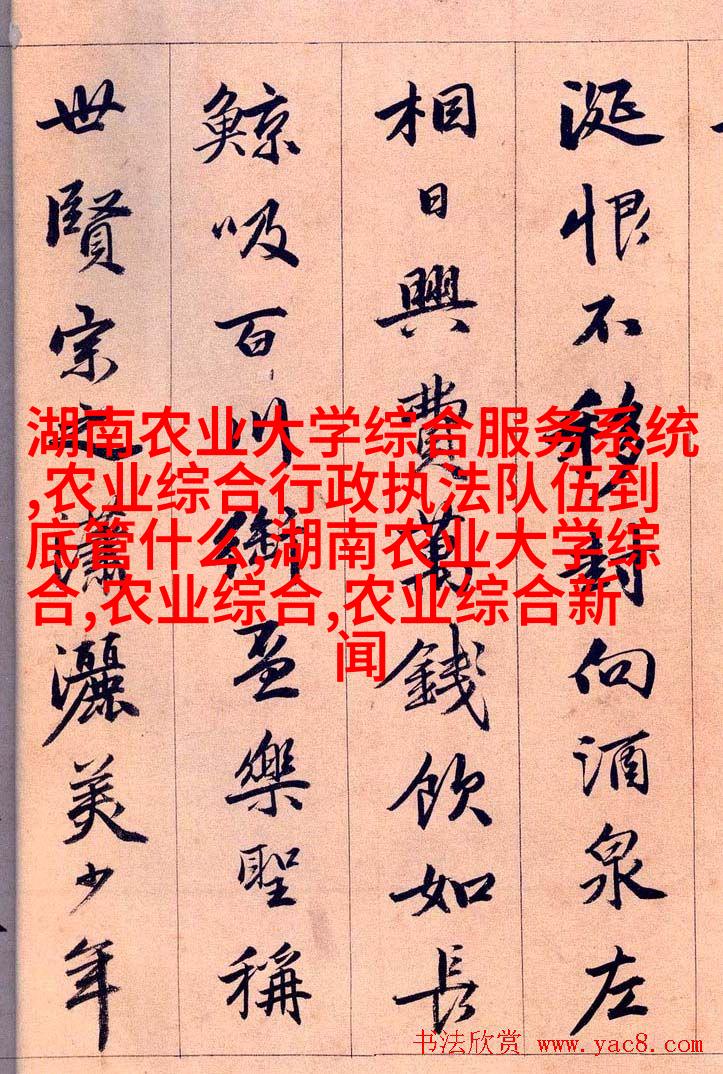 涎恨不移封向酒泉左
相日興費萬錢飲如長
鯨吸百川銜盃樂聖稱
世賢宗之瀟灑美少年
湖南农业大学综合服务系统
,农业综合行政执法队伍到
底管什么,湖南农业大学综
合,农业综合,农业综合新
闻
书法欣赏 www.yac8.com